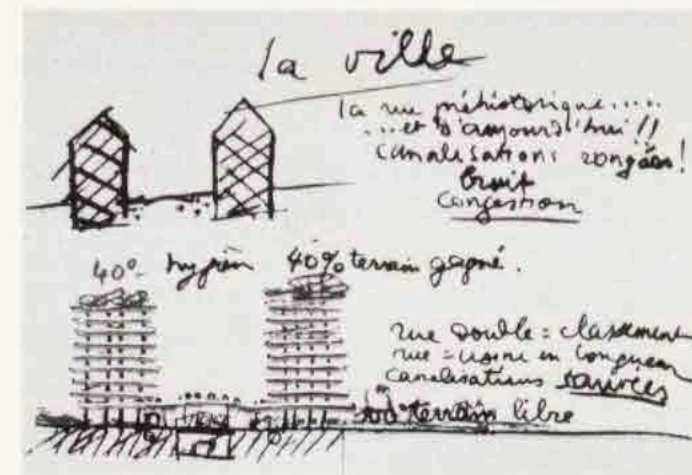 la ville
la rue préhistorique.....
...et d'aujourd'hui !!
canalisations rongées !
bruit
congestion
40% 40% terrain gagné.
rue double = classement
rue = usine en longueur
canalisations sauvées
100% terrain libre